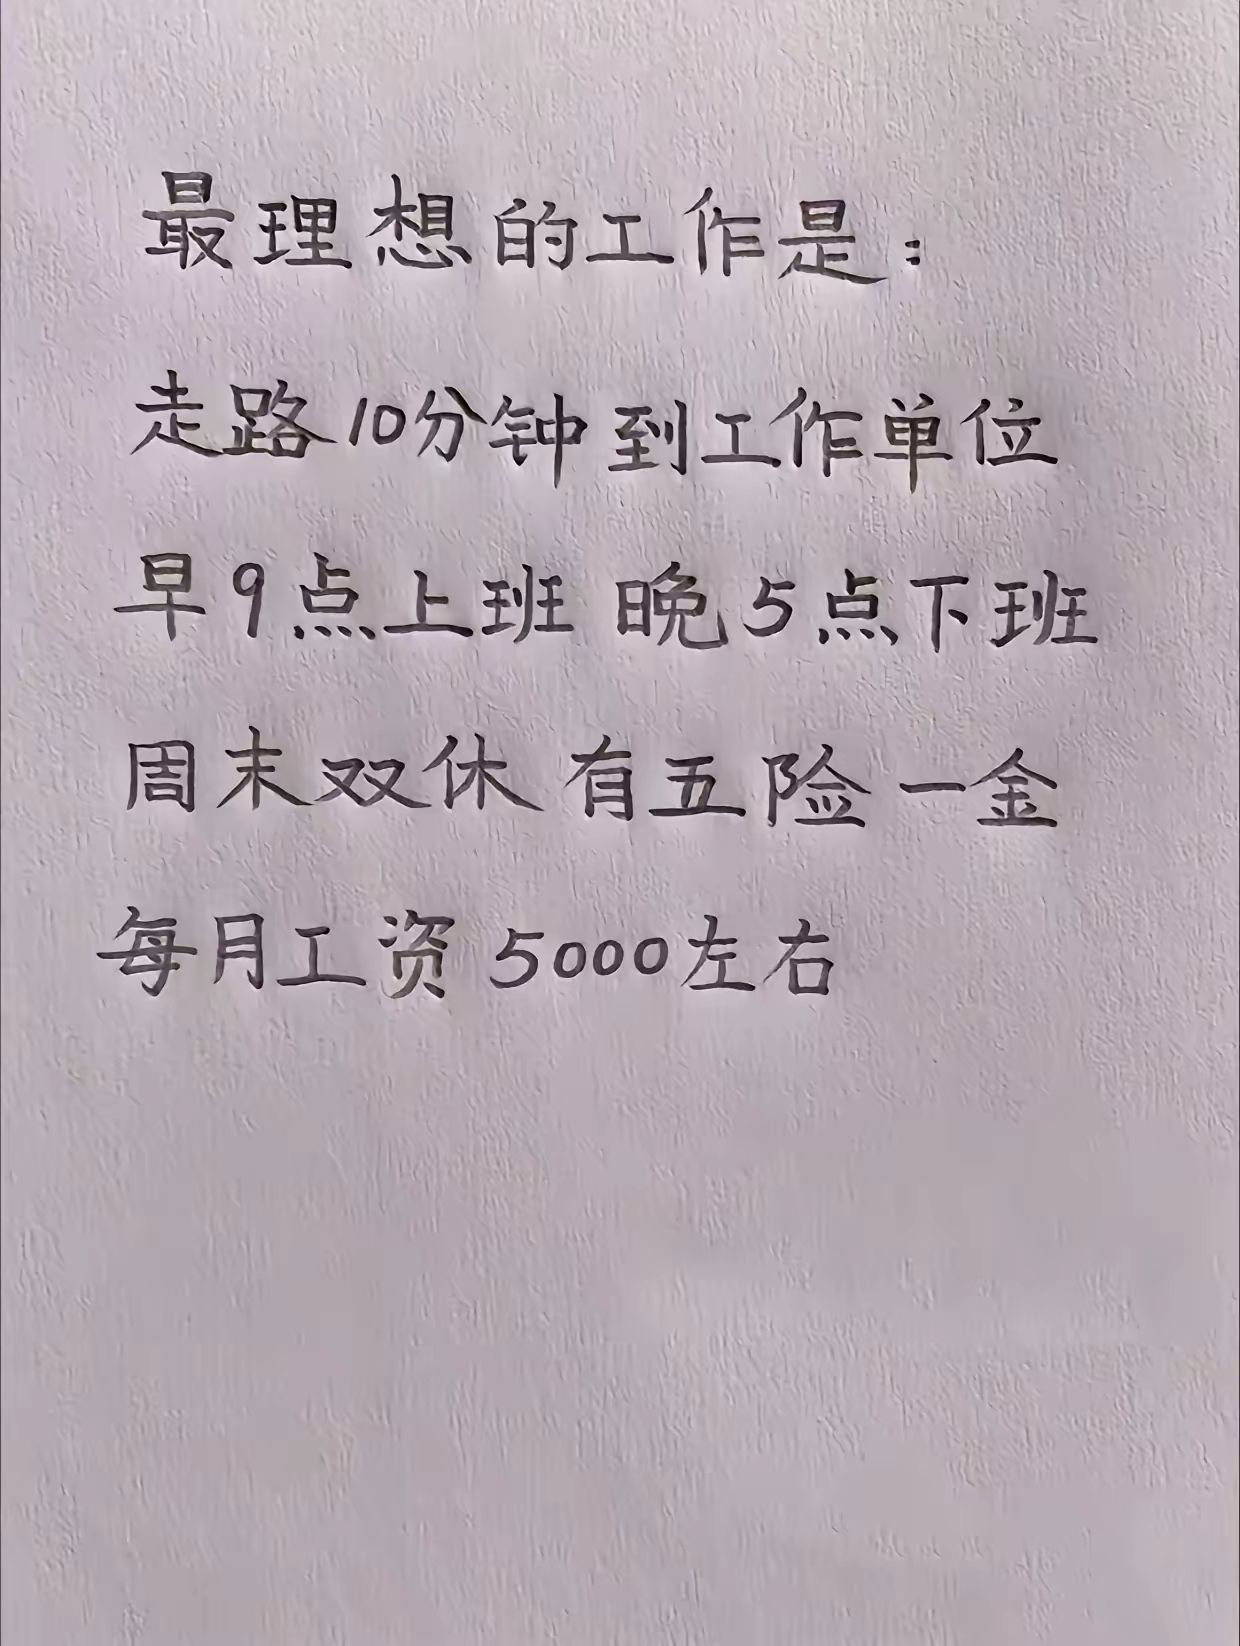 最理想的工作是：
走路10分钟到工作单位
早9点上班 晚5点下班
周末双休 有五险一金
每月工资5000左右